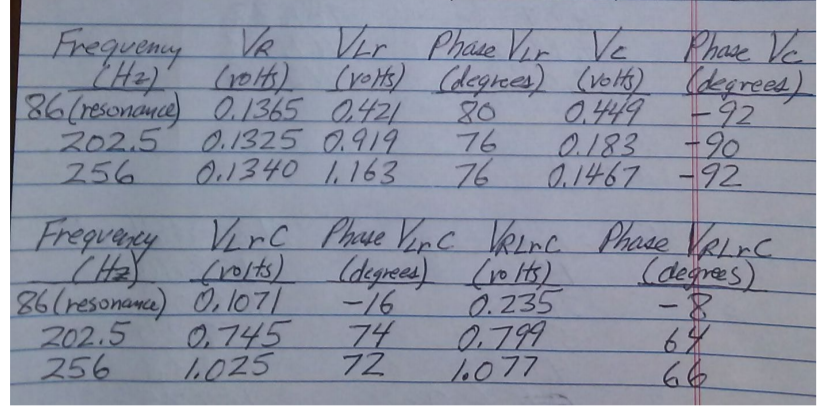 Frequency VR VLr Phase VLr VC Phase VC
(Hz) (volts) (volts) (degrees) (volts) (degrees)
86(resonance) 0.1365 0.421 80 0.449 -92
202.5 0.1325 0.919 76 0.183 -90
256 0.1340 1.163 76 0.1467 -92
Frequency VLrC Phase VLrC VRLrC Phase VRLrC
(Hz) (volts) (degrees) (volts) (degrees)
86(resonance) 0.1071 -16 0.235 -8
202.5 0.745 74 0.799 64
256 1.025 72 1.077 66